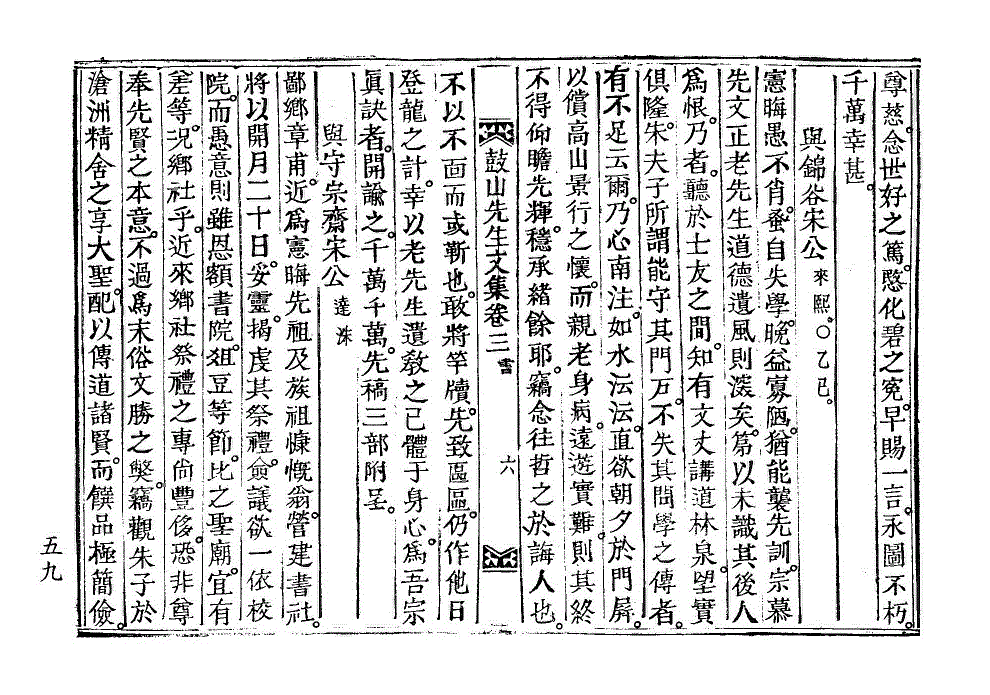 尊慈。念世好之篤。愍化碧之寃。早賜一言。永圖不朽。
千萬幸甚。
與錦谷宋公 來熙。○乙巳。
憲晦愚不肖。蚤自失學。晩益寡陋。猶能襲先訓。宗慕
先文正老先生道德遺風則深矣。第以未識其後人
爲恨。乃者。聽於士友之間。知有文丈講道林泉。望實
俱隆。朱夫子所謂能守其門戶。不失其問學之傳者。
有不足云爾。乃心南注。如水沄沄。直欲朝夕於門屛。
以償高山景行之懷。而親老身病。遠遊實難。則其終
不得仰瞻先輝。穩承緖餘耶。竊念往哲之於誨人也。
鼓山先生文集卷三 書 六
不以不面而或靳也。敢將竿牘。先致區區。仍作他日
登龍之計。幸以老先生遺敎之已體于身心。爲吾宗
眞訣者。開諭之。千萬千萬。先稿三部附呈。
與守宗齋宋公 達洙
鄙鄕章甫。近爲憲晦先祖及族祖慷慨翁。營建書社。
將以開月二十日。妥靈揭虔。其祭禮。僉議欲一依校
院。而愚意則雖恩額書院。俎豆等節。比之聖廟。宜有
差等。況鄕社乎。近來鄕社祭禮之專尙豐侈。恐非尊
奉先賢之本意。不過爲末俗文勝之獘。竊觀朱子於
滄洲精舍之享大聖。配以傳道諸賢。而饌品極簡儉。
五九